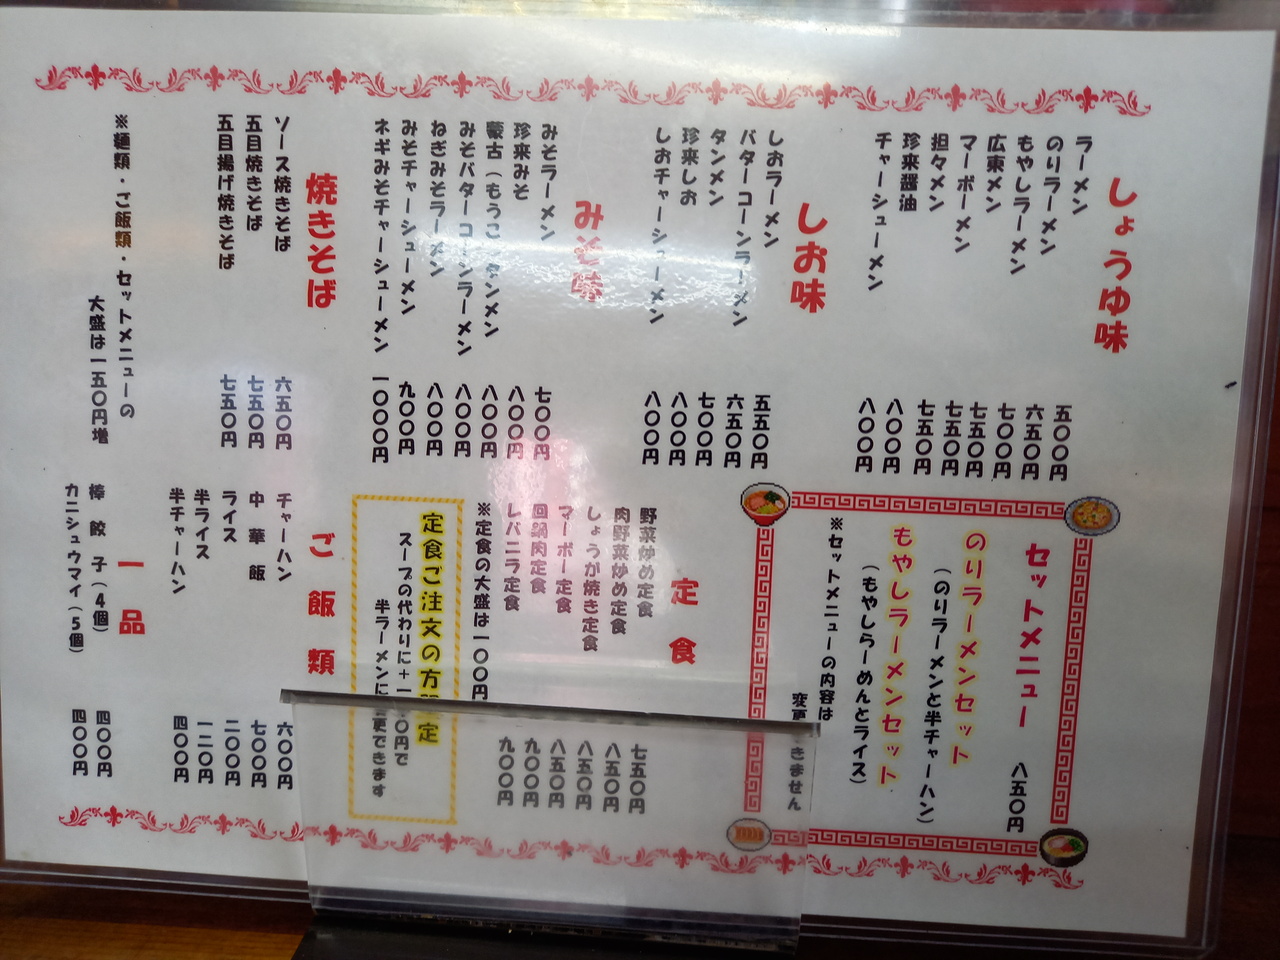 しょうゆ味
ラーメン 五〇〇円
のりラーメン 六五〇円
もやしラーメン 七〇〇円
広東メン 七五〇円
マーボーメン 七五〇円
担々メン 七五〇円
珍来醤油 八〇〇円
チャーシューメン 八〇〇円
しお味
しおラーメン 五五〇円
バターコーンラーメン 六五〇円
タンメン 七〇〇円
珍来しお 八〇〇円
しおチャーシューメン 八〇〇円
みそ味
みそラーメン 七〇〇円
珍来みそ 八〇〇円
蒙古(もうこ)タンメン 八〇〇円
みそバターコーンラーメン 八〇〇円
ねぎみそラーメン 八〇〇円
みそチャーシューメン 九〇〇円
ネギみそチャーシューメン 一〇〇〇円
焼きそば
ソース焼きそば 六五〇円
五目焼きそば 七五〇円
五目揚げ焼きそば 七五〇円
※麺類・ご飯類・セットメニューの
大盛は一五〇円増
セットメニュー 八五〇円
のりラーメンセット
(のりラーメンと半チャーハン)
もやしラーメンセット
(もやしらーめんとライス)
※セットメニューの内容は
変更できません
定食
野菜炒め定食 七五〇円
肉野菜炒め定食 八五〇円
しょうが焼き定食 八五〇円
マーボー定食 八五〇円
回鍋肉定食 九〇〇円
レバニラ定食 九〇〇円
※定食の大盛は一〇〇円
定食ご注文の方限定
スープの代わりに+一 〇円で
半ラーメンに変更できます
ご飯類
チャーハン 六〇〇円
中華飯 七〇〇円
ライス 二〇〇円
半ライス 一二〇円
半チャーハン 四〇〇円
一品
棒餃子(4個) 四〇〇円
カニシュウマイ(5個) 四〇〇円